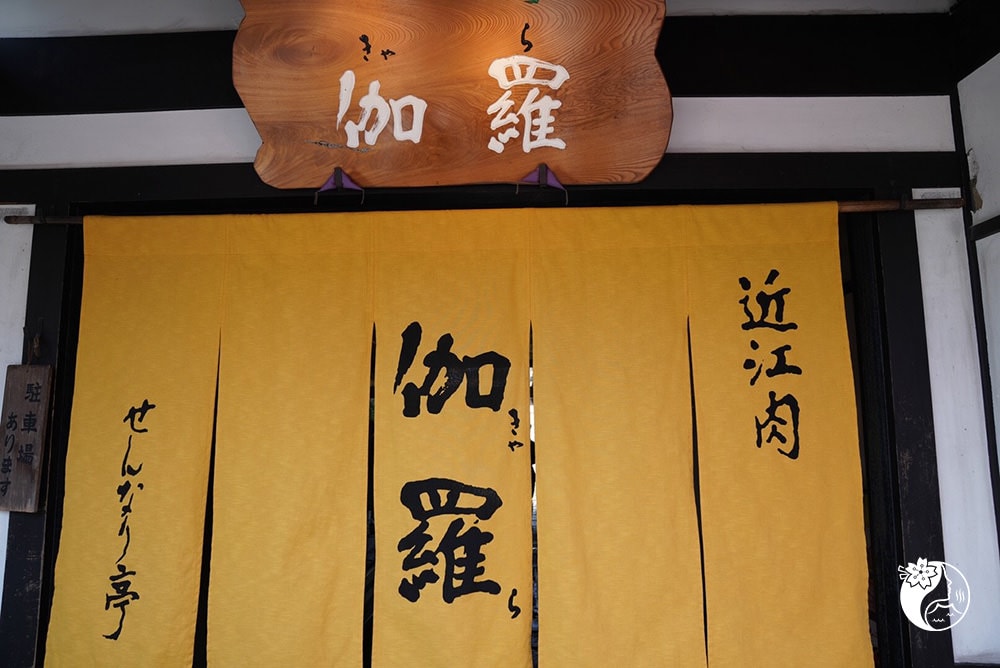 きゃら
伽羅
近江肉
伽羅
きゃら
せんなり亭
駐車場
あります